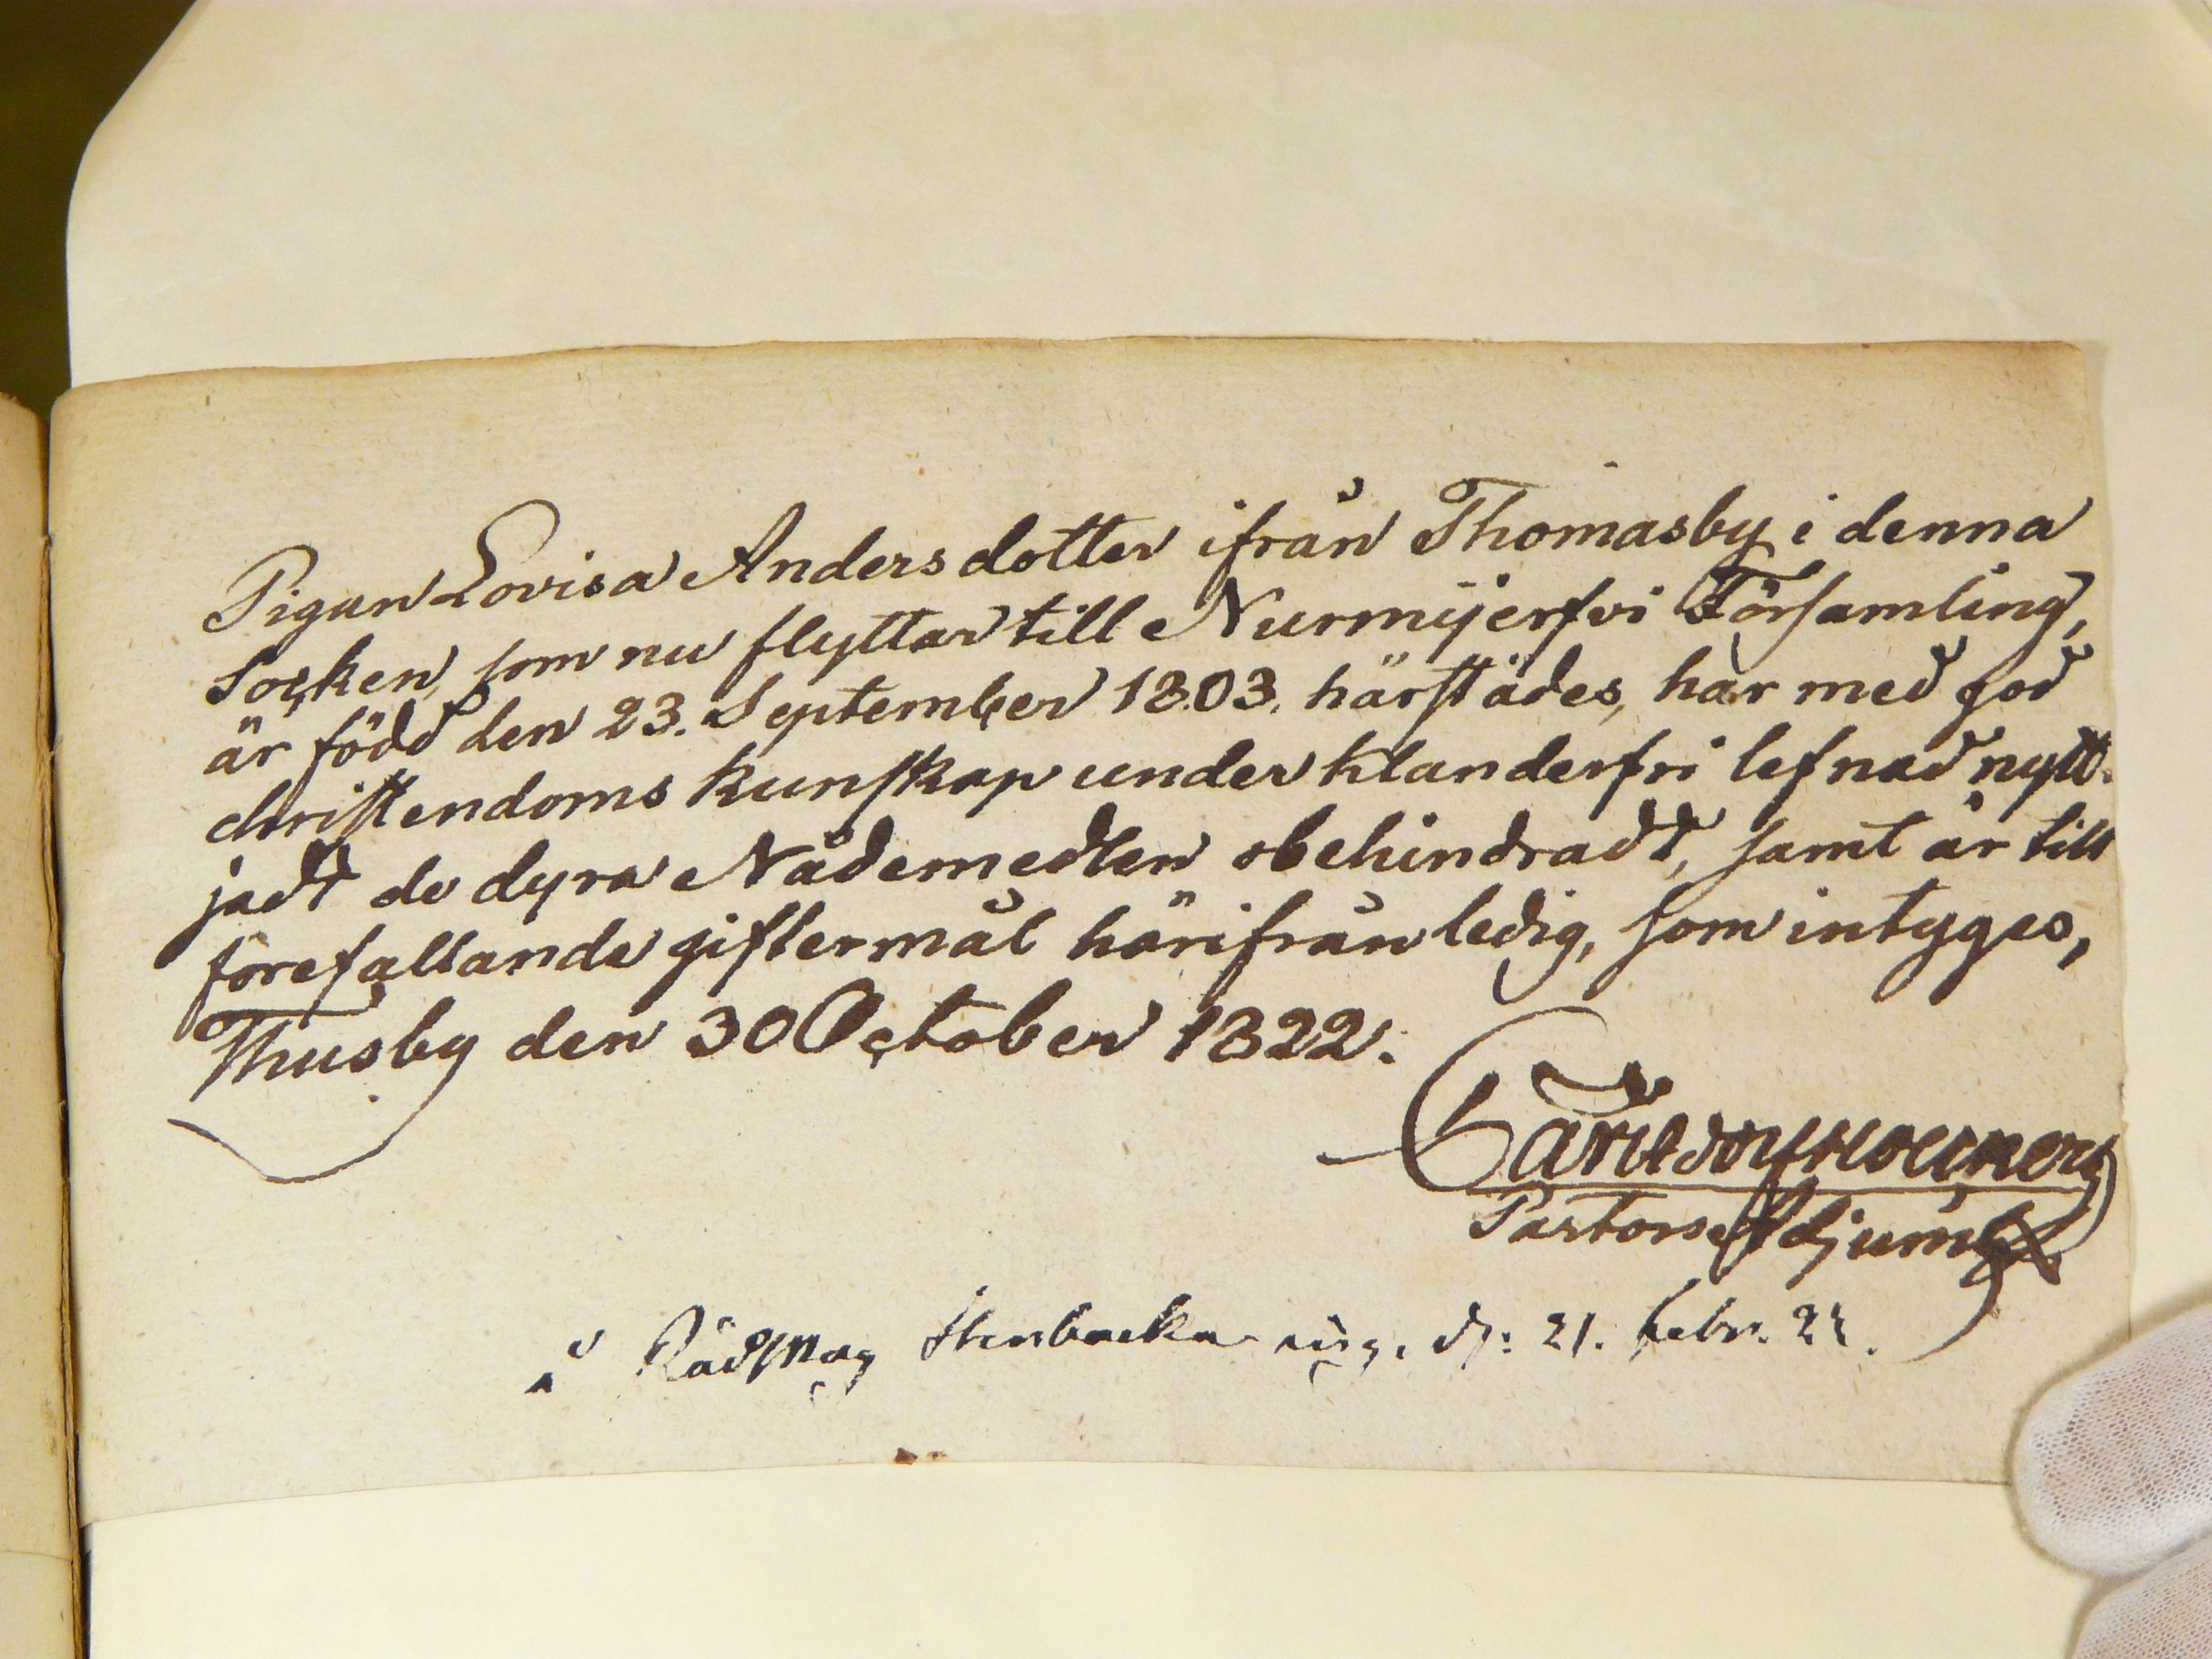 Pigan Lovisa Andersdotter ifrån Thomasby i denna
Socken, som nu flyttar till Nurmijerfvi Församling,
är född den 23. September 1803. härstädes, har med god
christendoms kunskap under klanderfri lefnad nytt-
jadt de dyra Nådemedlen obehindradt, samt är till
förefallande giftermål härifrån ledig, som intyges,
Thusby den 30 October 1822.
Carl
Pastors Adjunct
Stenbacka d: 21. Febr.